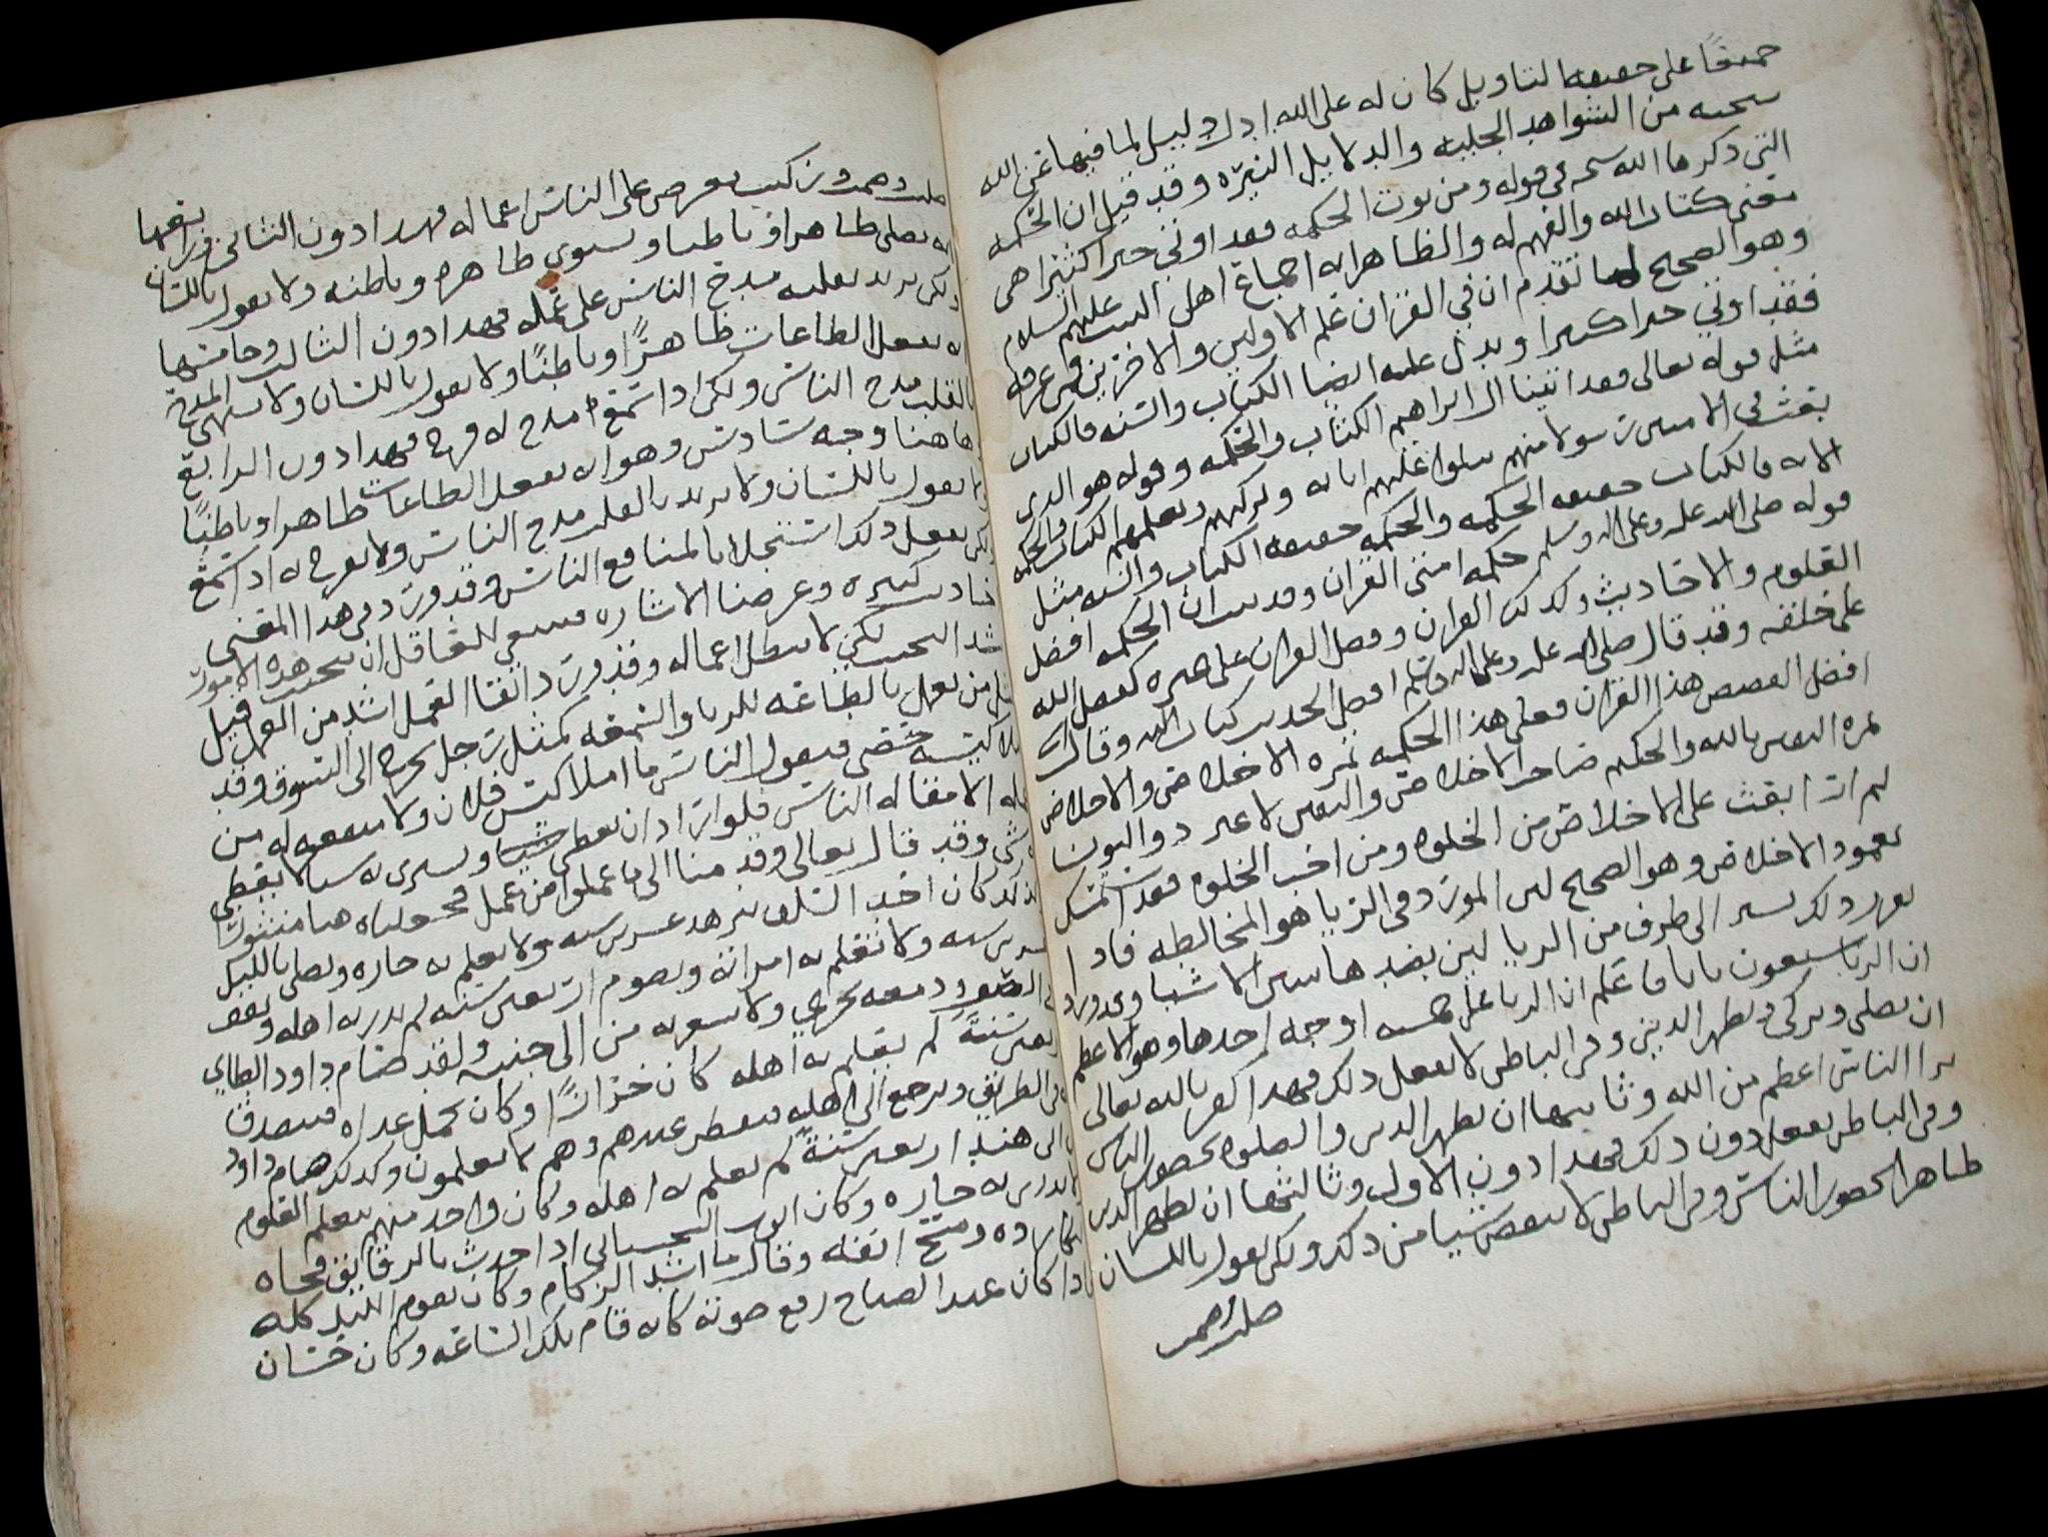 حميقا على حقيقه التاويل كان له على الله ادل دليل لما فيها عن الله
سحنه من الشواهد الجليه والدلايل النيره وقد قيل ان الحكمه
التي ذكرها الله سحنه في قوله ومن يوت الحكمه فقد اوتي خيرا كثيرا هي
معنى كتاب الله والفهم له والظاهر انه اجماع اهل البيت عليهم السلام
وهو الصحيح لما تقدم ان في القران علم الاولين والاخرين فمن عرفه
فقد اوتي خيرا كثيرا ويدل عليه ايضا الكتاب والسنه فالكتاب
مثل قوله تعالى فقد اتينا ال ابراهيم الكتاب والحكمه وقوله هو الذي
بعث في الاميين رسولا منهم يتلوا عليهم اياته ويزكيهم ويعلمهم الكتاب والحكمه
الايه فالكتاب حقيقه الحكمه والحكمه حقيقه الكتاب والسنه مثل
قوله صلى الله عليه وعلى اله وسلم حكمه امتي القران وقد بينت ان الحكمه افضل
العلوم والاحاديث وكذلك القران وفضل القران على غيره كفضل الله
على خلقه وقد قال صلى الله عليه وعلى اله وسلم افضل الحديث كتاب الله وقال
افضل القصص هذا القران فعلى هذا الحكمه ثمره الاخلاص والاخلاص
ثمره اليقين بالله والحكيم صاحب الاخلاص واليقين لا غير ذو النون
لم ار ابعث على الاخلاص من الخلوه ومن احب الخلوه فقد استمسك
بعمود الاخلاص وهو الصحيح لان المورد في الريا هو المخالطه فاذا
تقرر ذلك نشير الى طرف من الريا ليبين بضدها تتبين الاشيا وقد ورد
ان الريا سبعون بابا فاعلم ان الريا على خمسه اوجه احدها وهو الاعظم
ان يصلي ويزكي ويظهر الدين وفي الباطن لا يفعل ذلك فهذا كفر بالله تعالى
يرا الناس اعظم من الله وثانيها ان يظهر الدين والصلوه بحضور الناس
وفي الباطن يفعل دون ذلك فهذا دون الاول وثالثها ان يظهر الدين
ظاهرا بحضور الناس وفي الباطن لا ينقص شيا من ذلك ولكن يقول باللسان
صليت وصمت
صليت وصمت وزكيت يعرض على الناس اعماله فهذا دون الثاني ورابعها
انه يصلي ظاهرا وباطنا ويسوي ظاهره وباطنه ولا يقول باللسان
ولكن يريد بقلبه مدح الناس على عمله فهذا دون الثالث وخامسها
انه يفعل الطاعات ظاهرًا وباطنًا ولا يقول باللسان ولا يشتهي المدح
بالقلب مدح الناس ولكن اذا سمع مدح له فرح فهذا دون الرابع
وهاهنا وجه سادس وهو انه يفعل الطاعات ظاهرا وباطنًا
ولا يقول باللسان ولا يريد بالقلب مدح الناس ولا يفرح له اذا سمع
ولكن يفعل ذلك استجلابا لمنافع الناس وقد ورد في هذا المعنى
احاديث كثيره وغرضنا الاشاره فينبغي للعاقل ان يجتنب هذه الامور
اشد التجنب لكي لا يبطل اعماله وقد ورد اتقا العمل اشد من العمل قيل
مثل من يعمل بالطاعه للريا والسمعه كمثل رجل يخرج الى السوق وقد
ملا كيسه حصى فيقول الناس ما املا كيس فلان ولا منفعه له من
ماله الا مقاله الناس فلو اراد ان يعطى شيا ويشترى به شيا لا يعطي
شي وقد قال تعالى وقدمنا الى ما عملوا من عمل فجعلناه هبا منثورا
ولذلك كان احب السلف يزهد عشرين سنه ولا يعلم به جاره ويصلي بالليل
عشرين سنه ولا تعلم به امراته ويصوم اربعين سنه لم يدر به اهله ويقف
في الصف ودمعه يجري ولا يشعر به من الى جنبه ولقد صام داود الطائي
اربعين سنةً لم يعلم به اهله كان خرازًا وكان يحمل غداه فيتصدق
به في الطريق ويرجع الى اهله فيفطر عندهم وهم لا يعلمون وكذلك صام داود
بن ابي هند اربعين سنةً لم يعلم به اهله وكان واحد منهم يتعلم العلوم
لا يدري به جاره وكان ايوب السختياني اذا حدث بالرقايق فجاه
البكا رده ومسح انفه وقال ما اشد الزكام وكان يقوم الليل كله
اذا كان عند الصباح رفع صوته كانه قام تلك الساعه وكان حسان